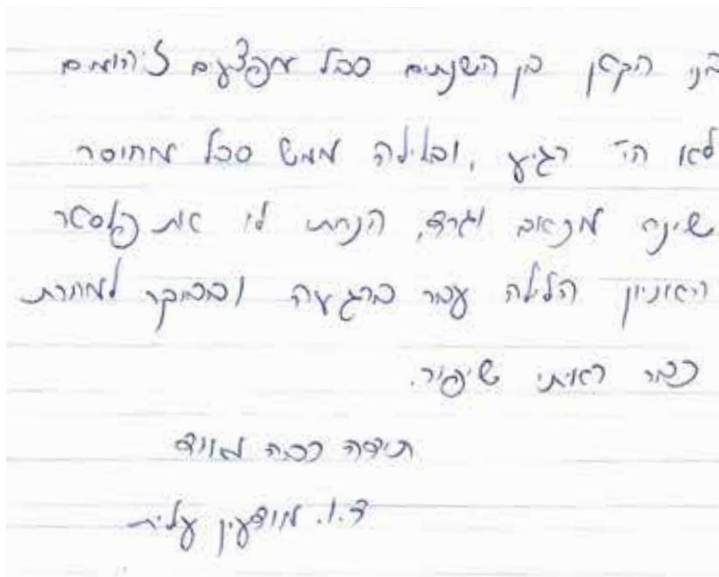 בני הקטן בן השנתיים סבל מפצעים זיהומים
לא הי' רגיע, ובלילה ממש סבל מחוסר
שינה מכאב וגרד, הנחתי לו את פלסטר
האוניון הלילה עבר ברגיעה ובבוקר למחרת
כבר ראיתי שיפור.
תודה רבה מאוד
ד.ו. מודיעין עלית